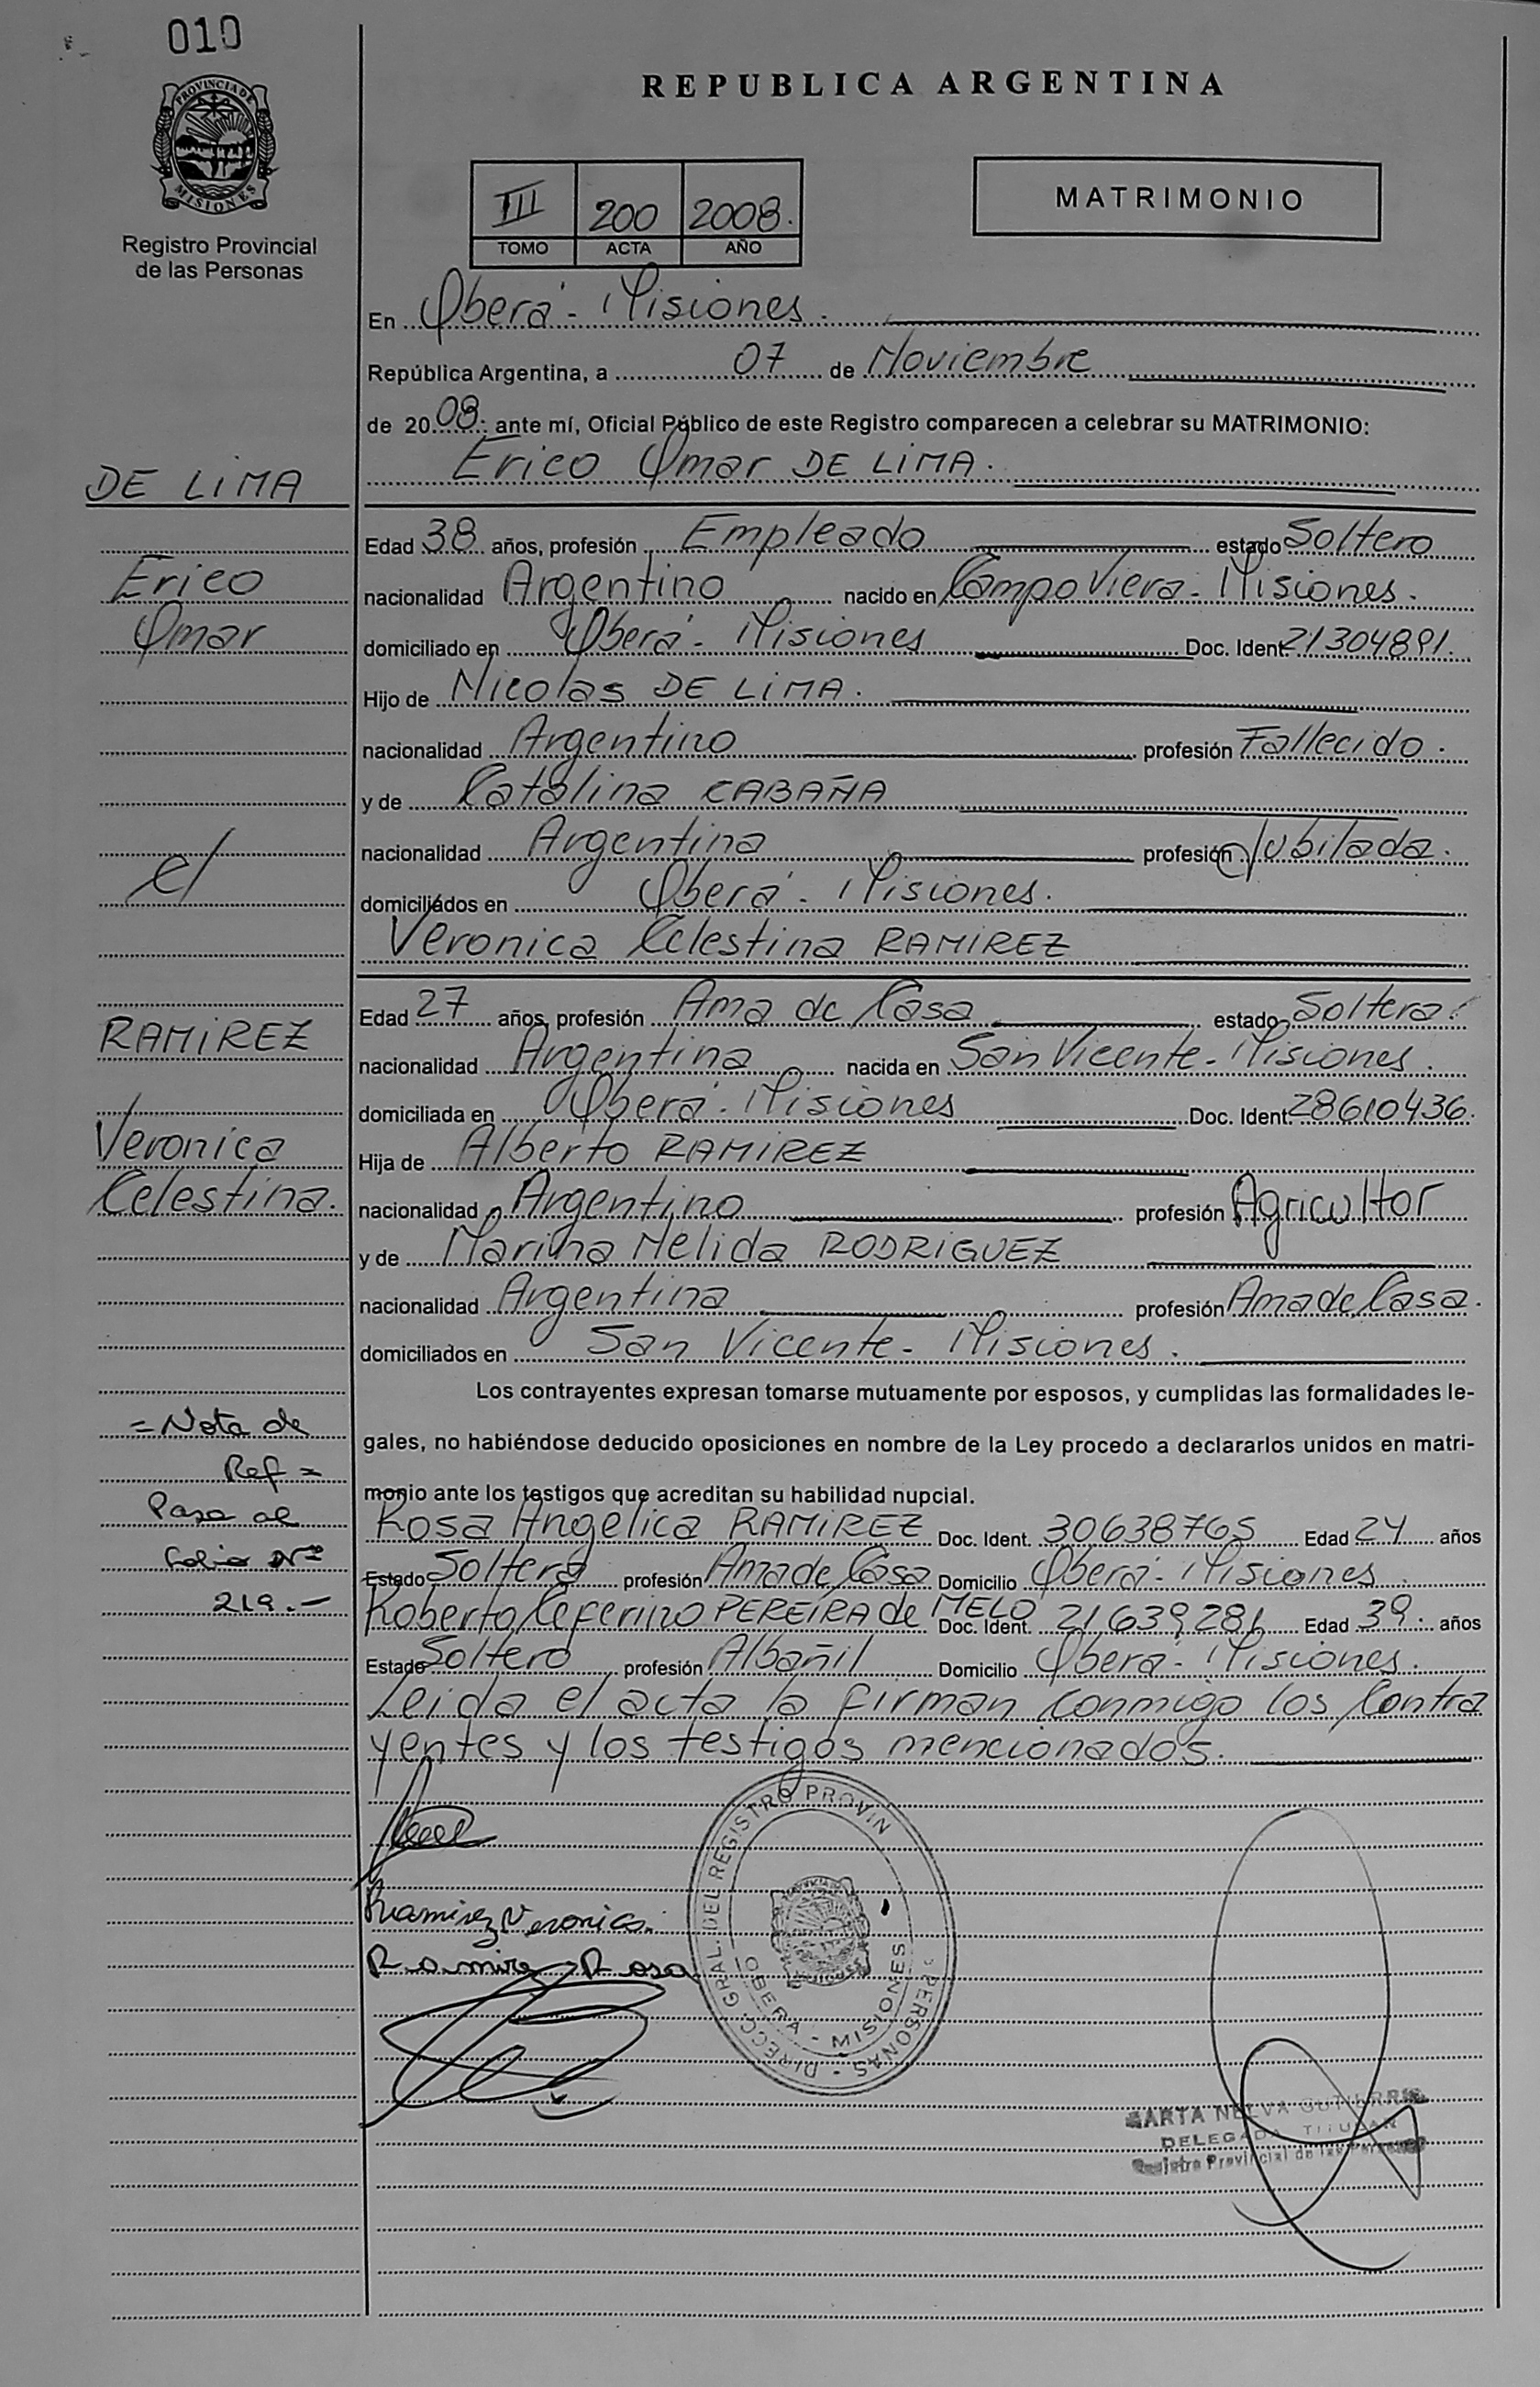 010
PROVINCIA DE
MISIONES
Registro Provincial
de las Personas
REPUBLICA ARGENTINA
III 200 2008.
TOMO ACTA AÑO
MATRIMONIO
En Oberá - Misiones.
República Argentina, a 07 de Noviembre
de 2008. ante mí, Oficial Público de este Registro comparecen a celebrar su MATRIMONIO:
Erico Omar DE LIMA.
DE LIMA
Edad 38 años, profesión Empleado estado Soltero
Erico
nacionalidad Argentino nacido en Campo Viera - Misiones.
Omar
domiciliado en Oberá - Misiones Doc. Ident. 21304891.
Hijo de Nicolas DE LIMA.
nacionalidad Argentino profesión Fallecido.
y de Catalina CABAÑA
el
nacionalidad Argentina profesión Jubilada.
domiciliados en Oberá - Misiones.
Veronica Celestina RAMIREZ
Edad 27 años, profesión Ama de Casa estado Soltera.
RAMIREZ
nacionalidad Argentina nacida en San Vicente - Misiones.
domiciliada en Oberá - Misiones Doc. Ident. 28610436.
Veronica
Hija de Alberto RAMIREZ
Celestina.
nacionalidad Argentino profesión Agricultor
y de Marina Nelida RODRIGUEZ
nacionalidad Argentina profesión Ama de Casa.
domiciliados en San Vicente - Misiones.
Los contrayentes expresan tomarse mutuamente por esposos, y cumplidas las formalidades le-
gales, no habiéndose deducido oposiciones en nombre de la Ley procedo a declararlos unidos en matri-
monio ante los testigos que acreditan su habilidad nupcial.
= Nota de
Ref =
Pasa al
Folio Nº
219.-
Rosa Angelica RAMIREZ Doc. Ident. 30638765 Edad 24 años
Estado Soltera profesión Ama de Casa Domicilio Oberá - Misiones
Roberto Ceferino PEREIRA de MELO Doc. Ident. 21639281 Edad 39. años
Estado Soltero profesión Albañil Domicilio Oberá - Misiones.
Leida el acta la firman conmigo los Contra
yentes y los testigos mencionados.
Ramirez Veronica.
Ramirez Rosa
DIRECC. GRAL. DEL REGISTRO PROVIN PERSONAS -
OBERA - MISIONES
MARTA NELVA GUTIERREZ
DELEGADA TITULAR
Registro Provincial de las Personas